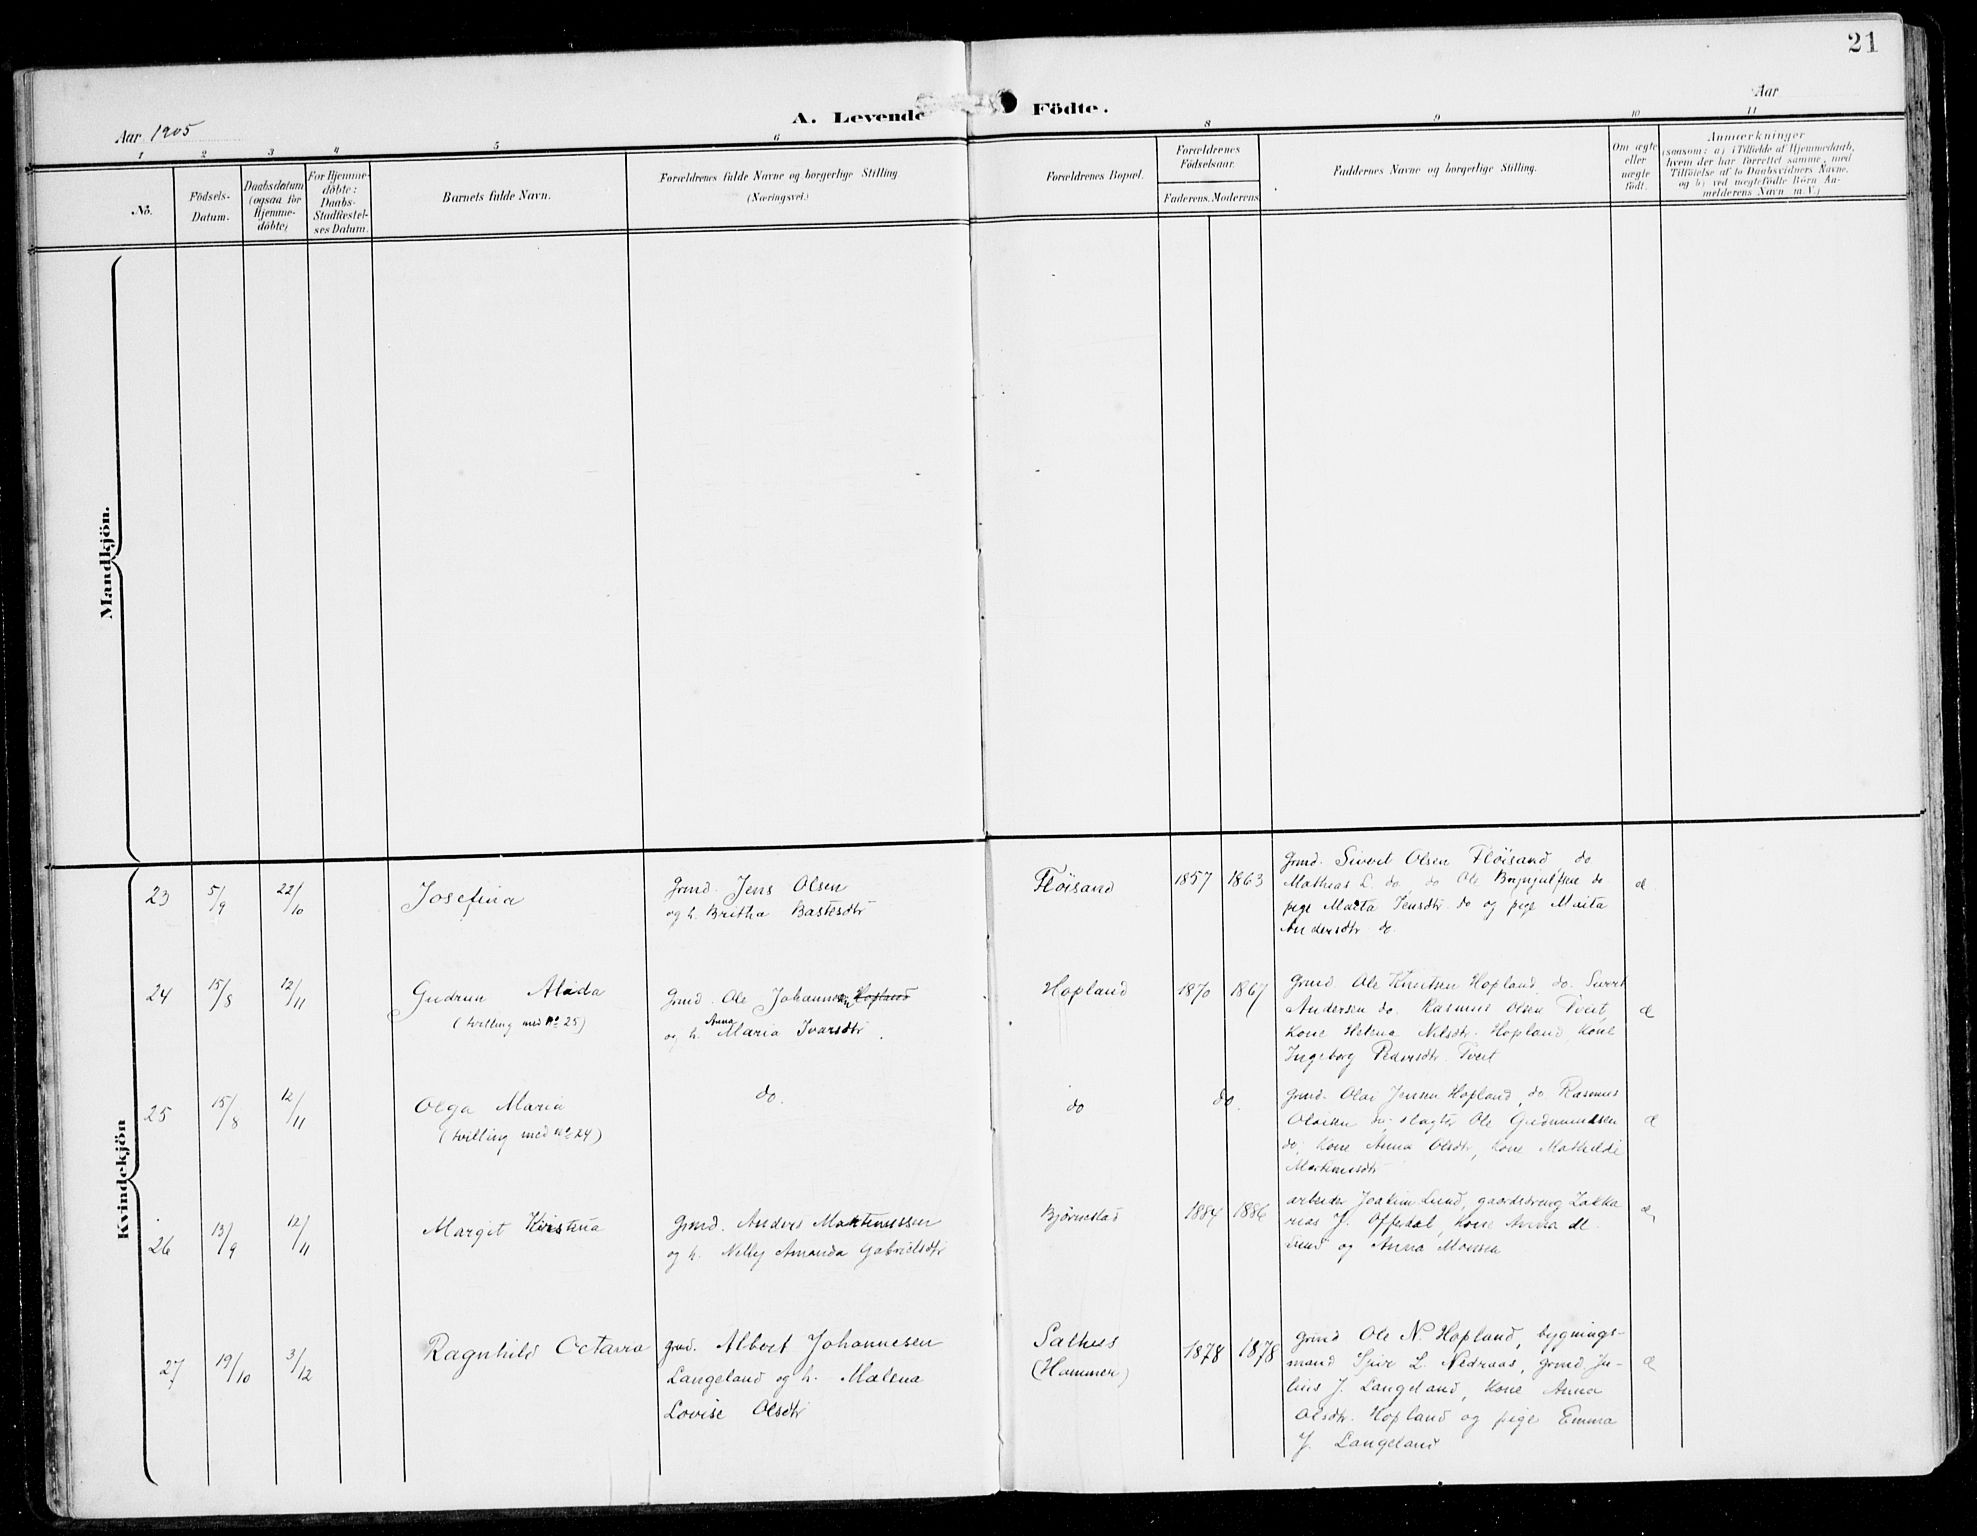 21
A. Levende Födte.
Aar 1905
Aar
1 2 3 4 5 6 8 9 10 11
No.
Födsels-
Datum.
Daabsdatum
(ogsaa for
Hjemme-
döbte)
For Hjemme-
döbte:
Daabs-
Stadfæstel-
ses Datum.
Barnets fulde Navn.
Forældrenes fulde Navne og borgerlige Stilling
(Næringsvei.)
Forældrenes Bopæl.
Forældrenes
Födselsaar.
Faderens. Moderens
Faddernes Navne og borgerlige Stilling.
Om ægte
eller
uægte
født.
Anmærkninger
(saasom: a) i Tilfælde af Hjemmedaab,
hvem der har forrettet samme, med
Tilföielse af to Daabsvidners Navne,
og b) ved uægtefödte Börn An-
melderens Navn m. V.)
Mandkjön.
Kvindekjön
23 5/9 22/10 Josefina
Grmd. Jens Olsen
og h. Britha Bastesdtr
Fløisand 1857 1863
Grmd. Sivert Olsen Fløisand, do
Mathias L. do, do Ole Brynjulfsen do
pige Marta Jensdtr do og pige Marta
Andersdtr do.
æ
24 15/8 12/11 Gudrun Alida
(tvilling med No 25)
Grmd. Ole Johannesen Hopland
og h. Anna Maria Ivarsdtr.
Hopland 1870 1867
Grmd Ole Knutsen Hopland, do. Sivert
Andersen do. Rasmus Olsen Tveit,
Kone Helena Nilsdtr. Hopland, Kone
Ingeborg Pedersdtr. Tveit
æ
25 15/8 12/11 Olga Maria
(tvilling med No 24)
do.
do
do.
Grmd. Olai Jensen Hopland, do Rasmus
Olsen do, Ole Gudmundsen
do, Kone Anna Olsdtr, Kone Mathilde
Martinusdtr
æ
26 13/9 12/11 Margit Kristina
Grmd. Anders Martinussen
og h. Nelly Amanda Gabrielsdtr
Bjørnestad 1884 1886
arbeider Joakim Lund, gaardsdreng Zakka
rias J. Offedal, Kone Anna
Lund og Anna Monsen
æ
27 19/10 3/12 Ragnhild Octavia
grmd. Albert Johannesen
Langeland og h. Malena
Lovise Olsdtr
Salhus
(Hammer)
1878 1878
Grmd Ole N. Hopland, bygnings-
mand Sjur L. Nedraas, Grmd. Ju-
lius J. Langeland, Kone Anna
Olsdtr. Hopland og pige Emma
J. Langeland
æ